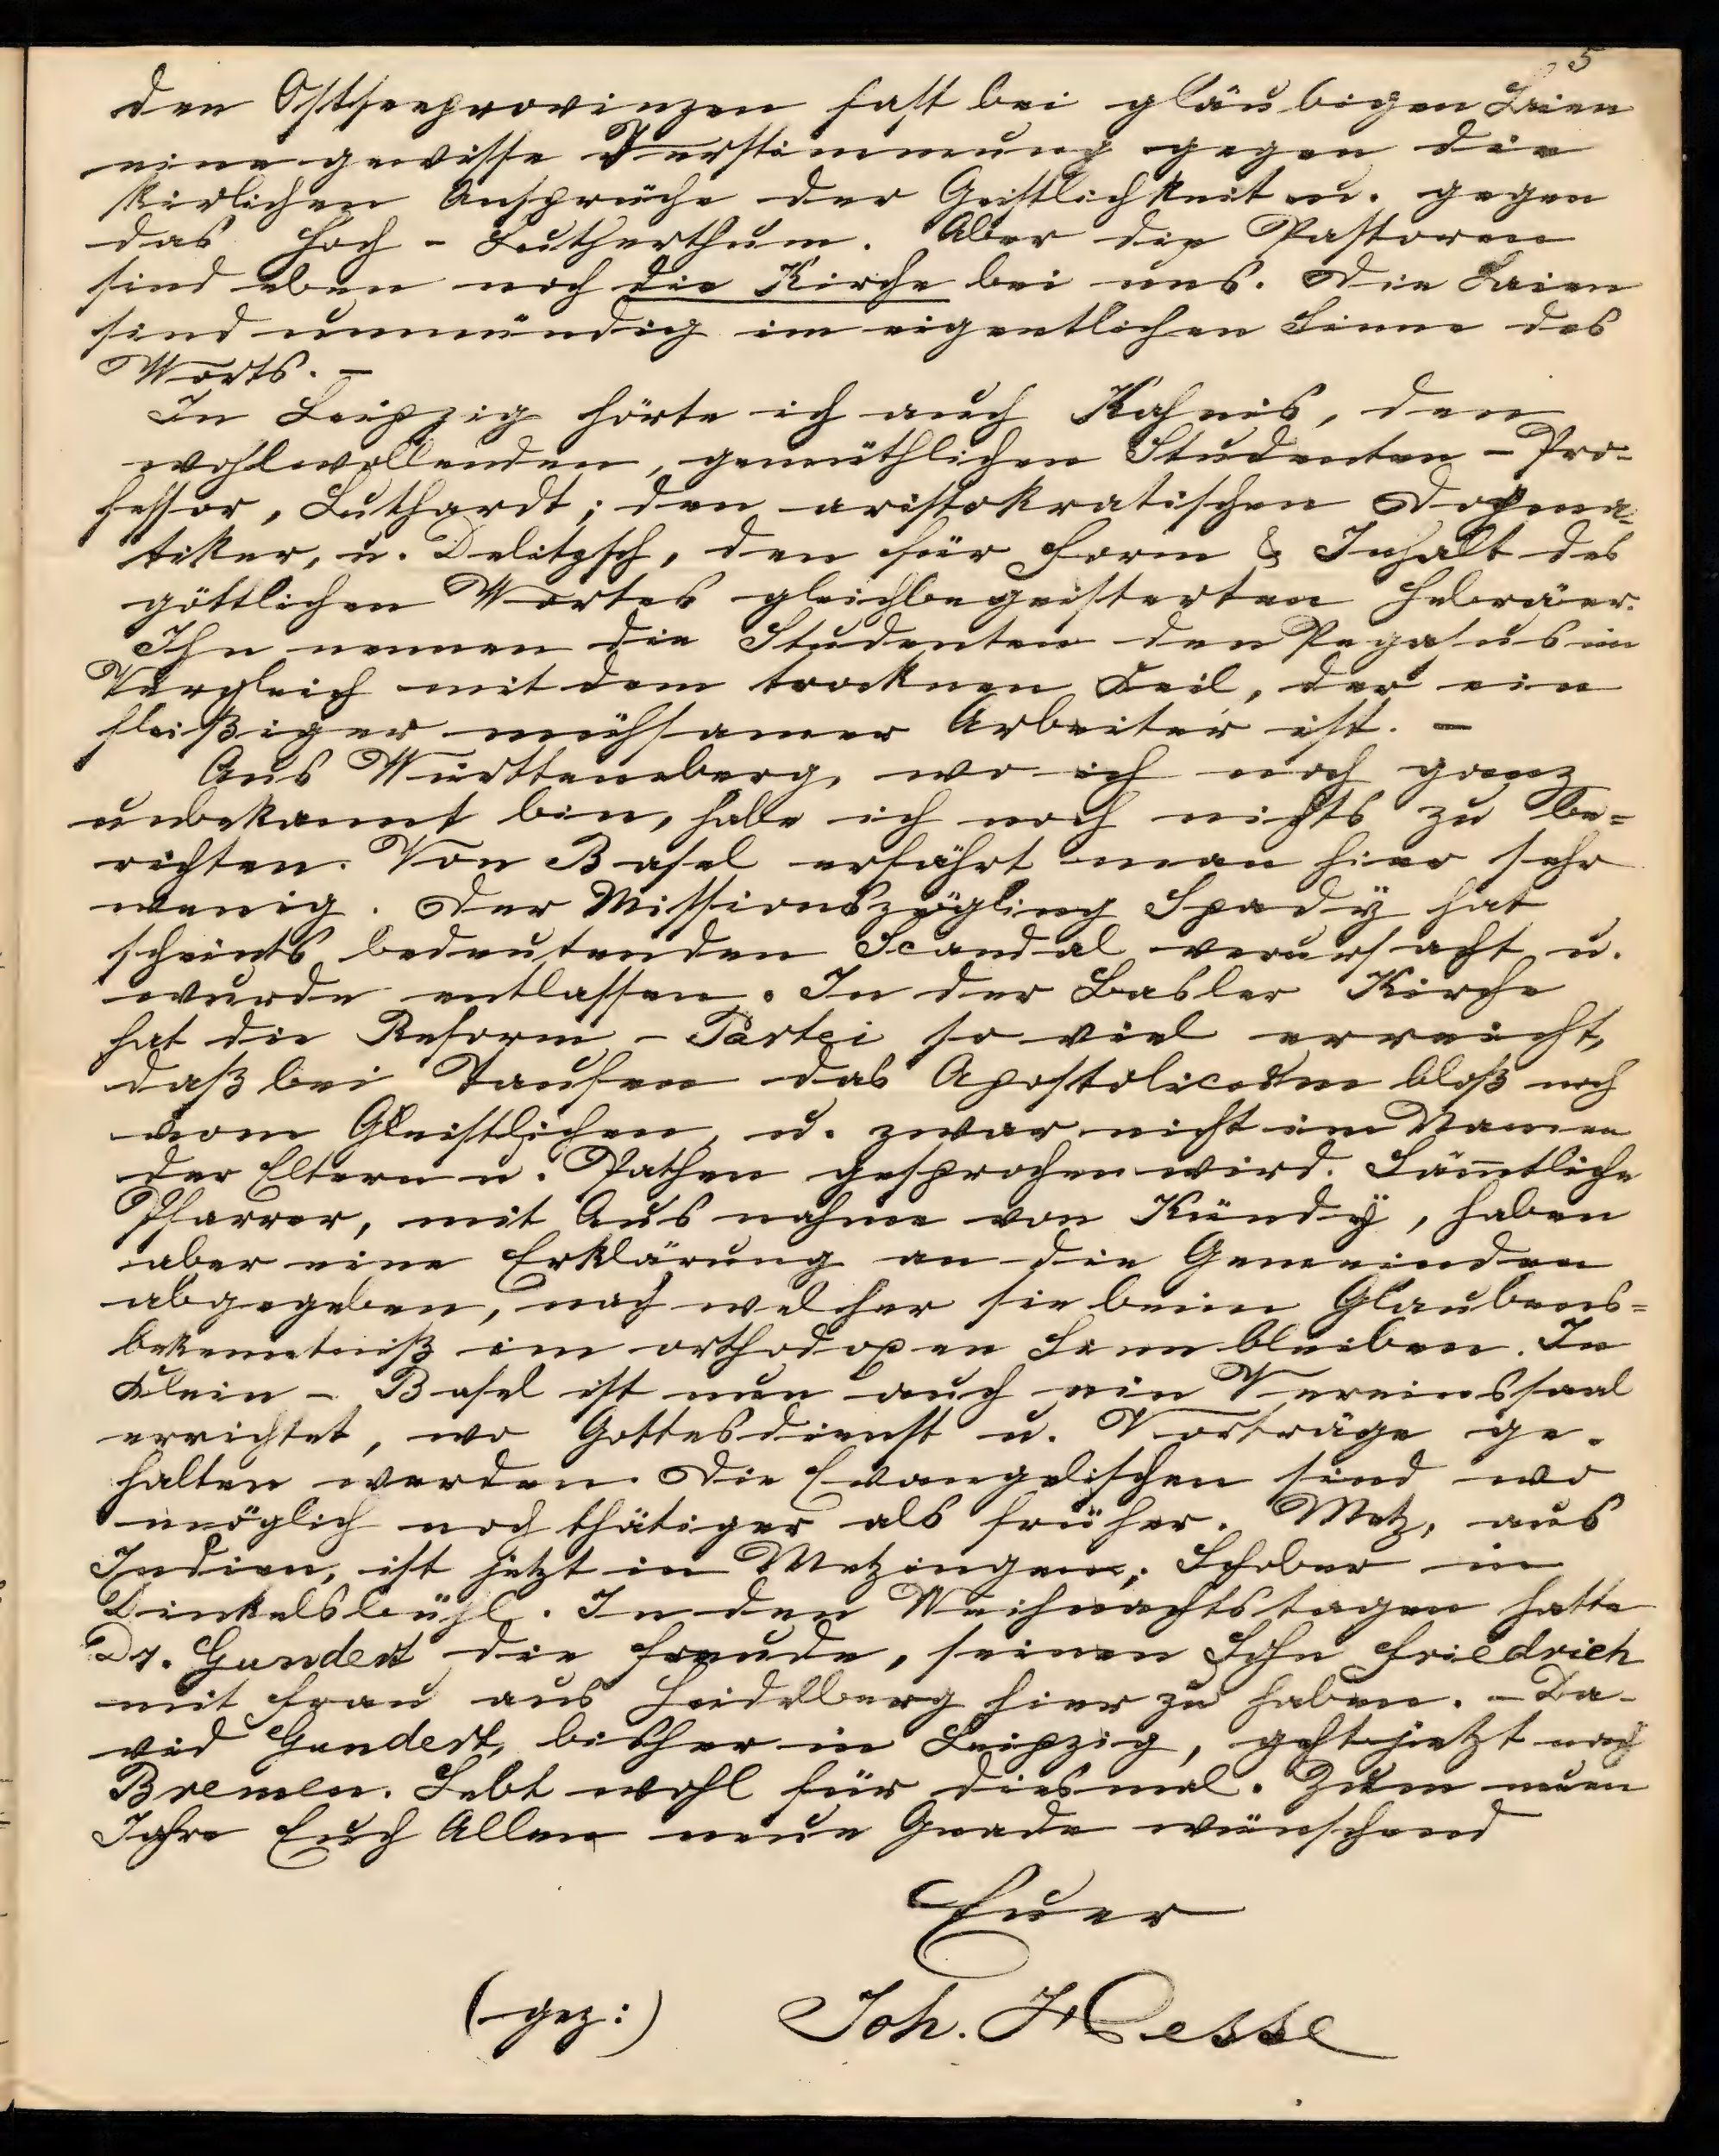 5
den Ostseeprovinzen fast bei gläubigen Laien
eine gewisse Verstimmung gegen die
kirlichen Ansprüche der Geistlichkeit u. gegen
das Hoch-Lutherthum. Aber die Pastoren
sind eben noch die Kirche bei uns. Die Laien
sind unmündig im eigentlichen Sinne des
Worts. –
In Leipzig hörte ich auch Kahnis, den
wohlwollenden, gemüthlichen Studenten-Pro-
fessor, Luthardt; den aristokratischen Dogma-
tiker, u. Delitzsch, den für Form & Inhalt des
göttlichen Wortes gleichbegeisterten Hebräer.
Ihn nennen die Studenten den Pegasus im
Vergleich mit dem trocknen Keil, der ein
fleißiger mühsamer Arbeiter ist. –
Aus Württemberg, wo ich noch ganz
unbekannt bin, habe ich noch nichts zu be-
richten. Von Basel erfährt man hier sehr
wenig. Der Missionszögling Spady hat
scheints bedeutenden Scandal verursacht u.
wurde entlassen. In der Basler Kirche
hat die Reform-Partei so viel erreicht,
daß bei Taufen das Apostolicum bloß noch
vom Geistlichen, u. zwar nicht im Namen
der Eltern u. Pathen gesprochen wird. Sämtliche
Pfarrer, mit Ausnahme von Kündy, haben
aber eine Erklärung an die Gemeinden
abgegeben, nach welcher sie beim Glaubens-
bekenntniß im orthodoxen Sinn bleiben. In
Klein-Basel ist nun auch ein Vereinssaal
errichtet, wo Gottesdienst u. Vorträge ge-
halten werden. Die Evangelischen sind wo
möglich noch thätiger als früher. Metz, aus
Indien, ist jetzt in Metzingen; Schober in
Dinkelsbühl. In den Weihnachtstagen hatte
Dr. Gundert die Freude, seinen Sohn Friedrich
mit Frau aus Heidelberg hier zu haben. – Da-
vid Gundert, bisher in Leipzig, geht jetzt nach
Bremen. Lebt wohl für diesmal. Zum neuen
Jahre Euch Allen neue Gnade wünschend
Euer
(gez:) Joh. Hesse